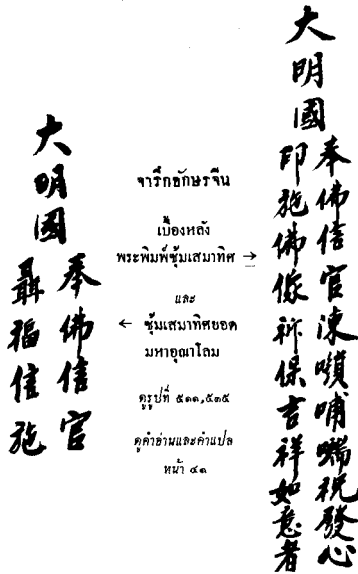 大明國
奉佛信官陳嗩哺喘祝發心
印施佛像祈保吉祥如意者
จารึกอักษรจีน
เบื้องหลัง
พระพิมพ์ซุ้มเสมาทิศ →
และ
← ซุ้มเสมาทิศยอด
มหาอุณาโลม
ดูรูปที่ ๕๑๑,๕๓๕
ดูคำอ่านและคำแปล
หน้า ๔๑
大明國
奉佛信官
聶福信施